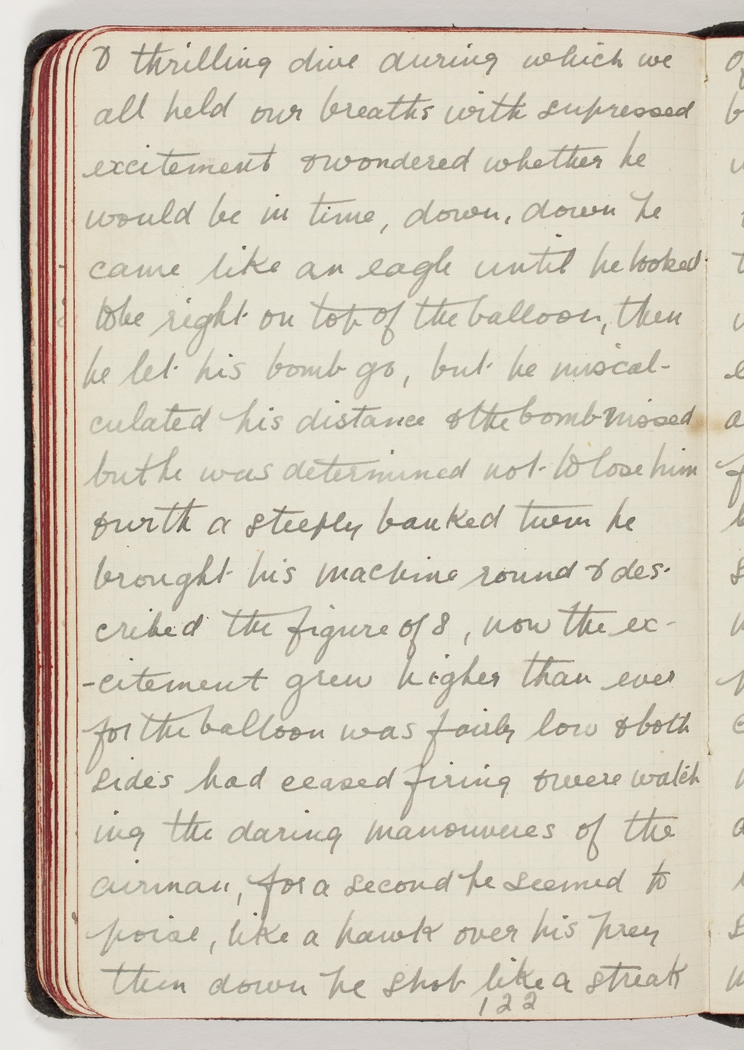 & thrilling dive during which we
all held our breaths with supressed
excitement & wondered whether he
would be in time, down, down he
came like an eagle until he looked
to be right on top of the balloon, then
he let his bomb go, but he miscal-
culated his distance & the bomb missed
but he was determined not to lose him
& with a steeply banked turn he
brought his machine round & des-
cribed the figure of 8, now the ex-
-citement grew higher than ever
for the balloon was fairly low & both
sides had ceased firing & were watch
ing the daring manouveres of the
airman, for a second he seemed to
poise, like a hawk over his prey
then down he shot like a streak
122